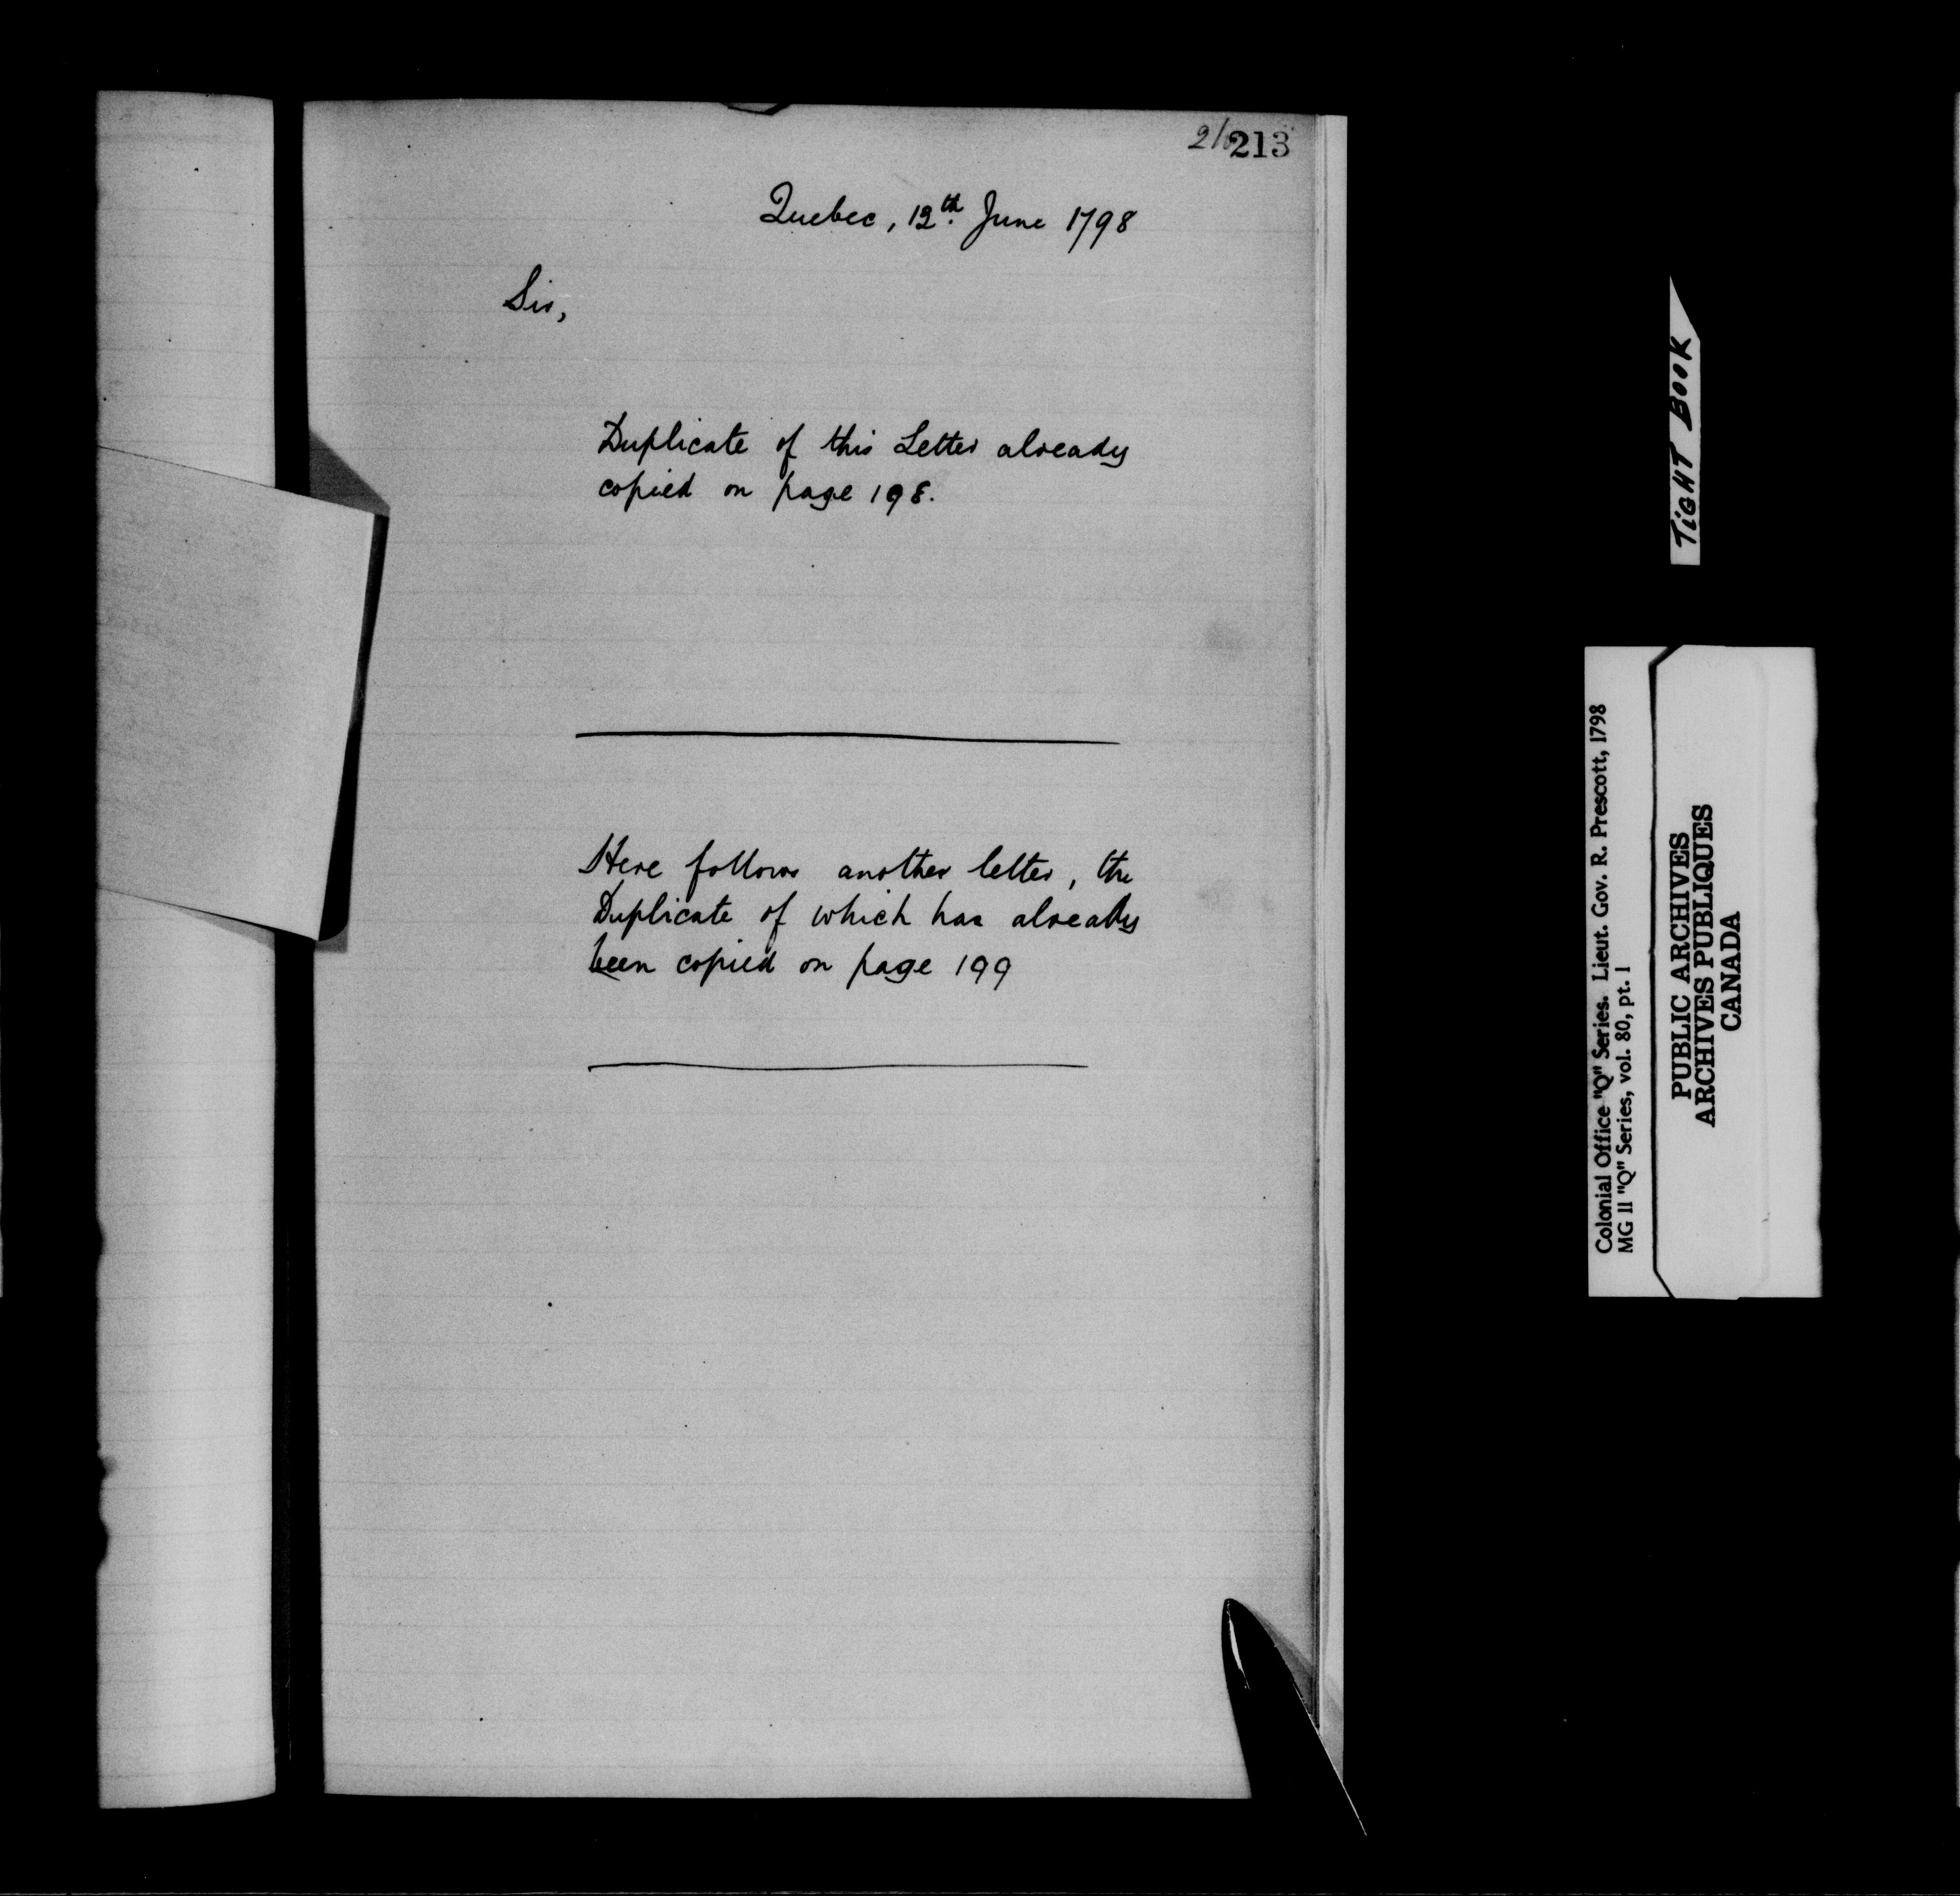 213
Quebec, 12th June 1798
Sir,
Duplicate of this Letter already
copied on page 198.
Here follows another letter, the
Duplicate of which has already
been copied on page 199
TIGHT BOOK
Colonial Office "Q" Series. Lieut. Gov. R. Prescott, 1798
MG 11 "Q" Series, vol. 80, pt. 1
PUBLIC ARCHIVES
ARCHIVES PUBLIQUES
CANADA